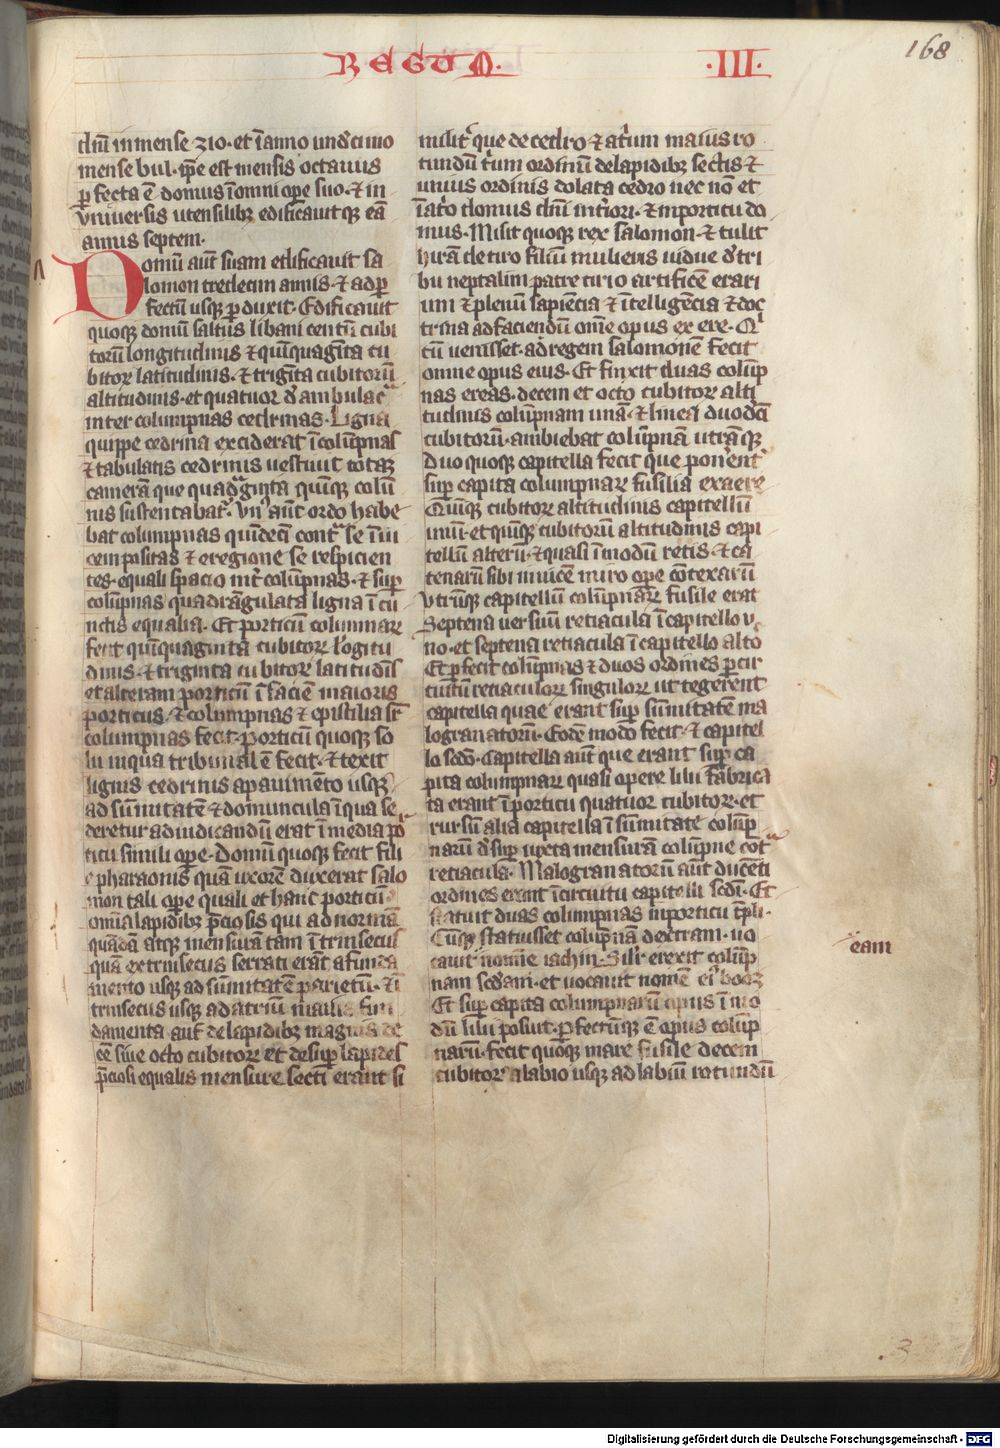 REGUM
·III·
168
dn̄i in mense zio· et ī anno undecimo
mense bul· ip̄e est mensis octauus
ꝑfecta ē domus ī omni oꝑe suo· ⁊ in
vniuersis utensilibꝫ edificauitqꝫ eā
annis septem·
Domū aūt suam edificauit sa
lomon tredecim annis· ⁊ ad ꝑ
fectū usqꝫ ꝑduxit· Edificauit
quoqꝫ domū saltus libani centū cubi
torū longitudinis ⁊ quīquagīta cu
bitoꝝ latitudinis· ⁊ trigīta cubitorū
altitudinis· et quatuor dābulac̄
inter columpnas cedrinas· Ligna
quippe cedrina exciderat ī colūpnas
⁊ tabulatis cedrinis uestiuit totaꝫ
camerā que quadͣginta quīqꝫ colū
nis sustentabat᷑· Vn᷒ aūt ordo habe
bat columpnas quīdecī contͣ se īui
cem positas ⁊ e regione se respicien
tes· equali spacio int᷑ colūpnas· ⁊ suꝑ
colūpnas quadrāgulata ligna ī cū
nctis equalia· Et porticū columnaꝝ
fecit quīquaginta cubitoꝝ lōgitu
dinis· ⁊ triginta cubitoꝝ latitudīs
et alteram porticū ī facie maioris
porticus· ⁊ columpnas ⁊ epistilia sr̄
columpnas fecit· porticū quoqꝫ so
lii in qua tribunal ē fecit· ⁊ texit
lignis cedrinis a pauimēto usqꝫ
ad sūmitatē ⁊ domuncula ī qua se
deretur ad iudicandū erat ī media po᷑
ticu simili oꝑe· Domū quoqꝫ fecit fili
e pharaonis quā uxorē duxerat salo
mon tali oꝑe quali et hanc porticū·
omīa lapidibꝫ p̄ciosis qui ad normā
quādā atqꝫ mensurā tam ītrinsecus
quā extrinsecus serrati erāt a funda
mento usqꝫ ad sumitatē parietū· ⁊ ī
trinsecus usqꝫ ad atriū maius fun
damenta aut̄ de lapidibꝫ magnis de
cē siue octo cubitoꝝ et desuꝑ lapides
p̄ciosi equalis mensure secti erant si
milit᷑que de cedro ⁊ at᷑um maius ro
tundū t᷑um ordinū de lapidibꝫ sectis ⁊
unius ordinis dolata cedro nec nō et
ī at᷑o domus dn̄i int᷑iori· ⁊ in porticu do
mus· Misit quoqꝫ rex salomon· ⁊ tulit
hirā de tiro filiū mulieris uidue d̓ tri
bu neptalim patre tirio artificē erari
um ⁊ plenū sapiēcia ⁊ ītelligēcia ⁊ doc
trina ad faciendū om̄e opus ex ere· Qͥ
cū uenisset· ad regem salomonē fecit
omne opus eius· Et finxit duas colūp
nas ereas· decem et octo cubitoꝝ alti
tudinis colūpnam unā· ⁊ linea duodecī
cubitorū· ambiebat colūpnā utrāqꝫ
Duo quoqꝫ capitella fecit que ponerent᷑
suꝑ capita columpnaꝝ fusilia ex aere
Quīqꝫ cubitoꝝ altitudinis capitellū
unū· et quīqꝫ cubitorū altitudinis capi
tellū alterū· ⁊ quasi ī modū retis· ⁊ ca
tenarū sibi inuicē miro oꝑe cōtexarū
Vtrūqꝫ capitellū colūpnaꝝ fusile erat
Septena uersuū retiacula ī capitello u
no· et septena retiacula ī capitello alto
Et ꝑfecit colūpnas ⁊ duos ordines ꝑ cir
cuitū retiaculoꝝ singuloꝝ ut tegerent
capitella quae erant suꝑ sūmitatem ma
logranatorū· Eodē modo fecit· ⁊ capitel
lo sc̄do· Capitella aūt que erant suꝑ ca
pita columpnaꝝ quasi opere lilii fabrica
ta erant ī porticu quatuor cubitoꝝ· et
rursū alia capitella ī sūmitate colūp
narū d̓suꝑ iuxta mensurā colūpne cōtͣ
retiacula· Malogranatorū aūt ducēti
ordines erant ī circuitu capitelli sc̄di· Et
statuit duas columpnas in porticu tēpli·
Cūqꝫ statuisset colūpnā dextram· uo
cauit nomīe iachin· Silʳ erexit colūp
nam sc̄dam· et uocauit nomē ei᷒ booz
Et suꝑ capita columpnarū opus ī mo
dū lilii posuit· ꝑfectūqꝫ ē opus colūp
narū· fecit quoqꝫ mare fusile decem
cubitoꝝ a labio usqꝫ ad labiū rotundū
eam
3
Digitalisierung gefördert durch die Deutsche Forschungsgemeinschaft - DFG